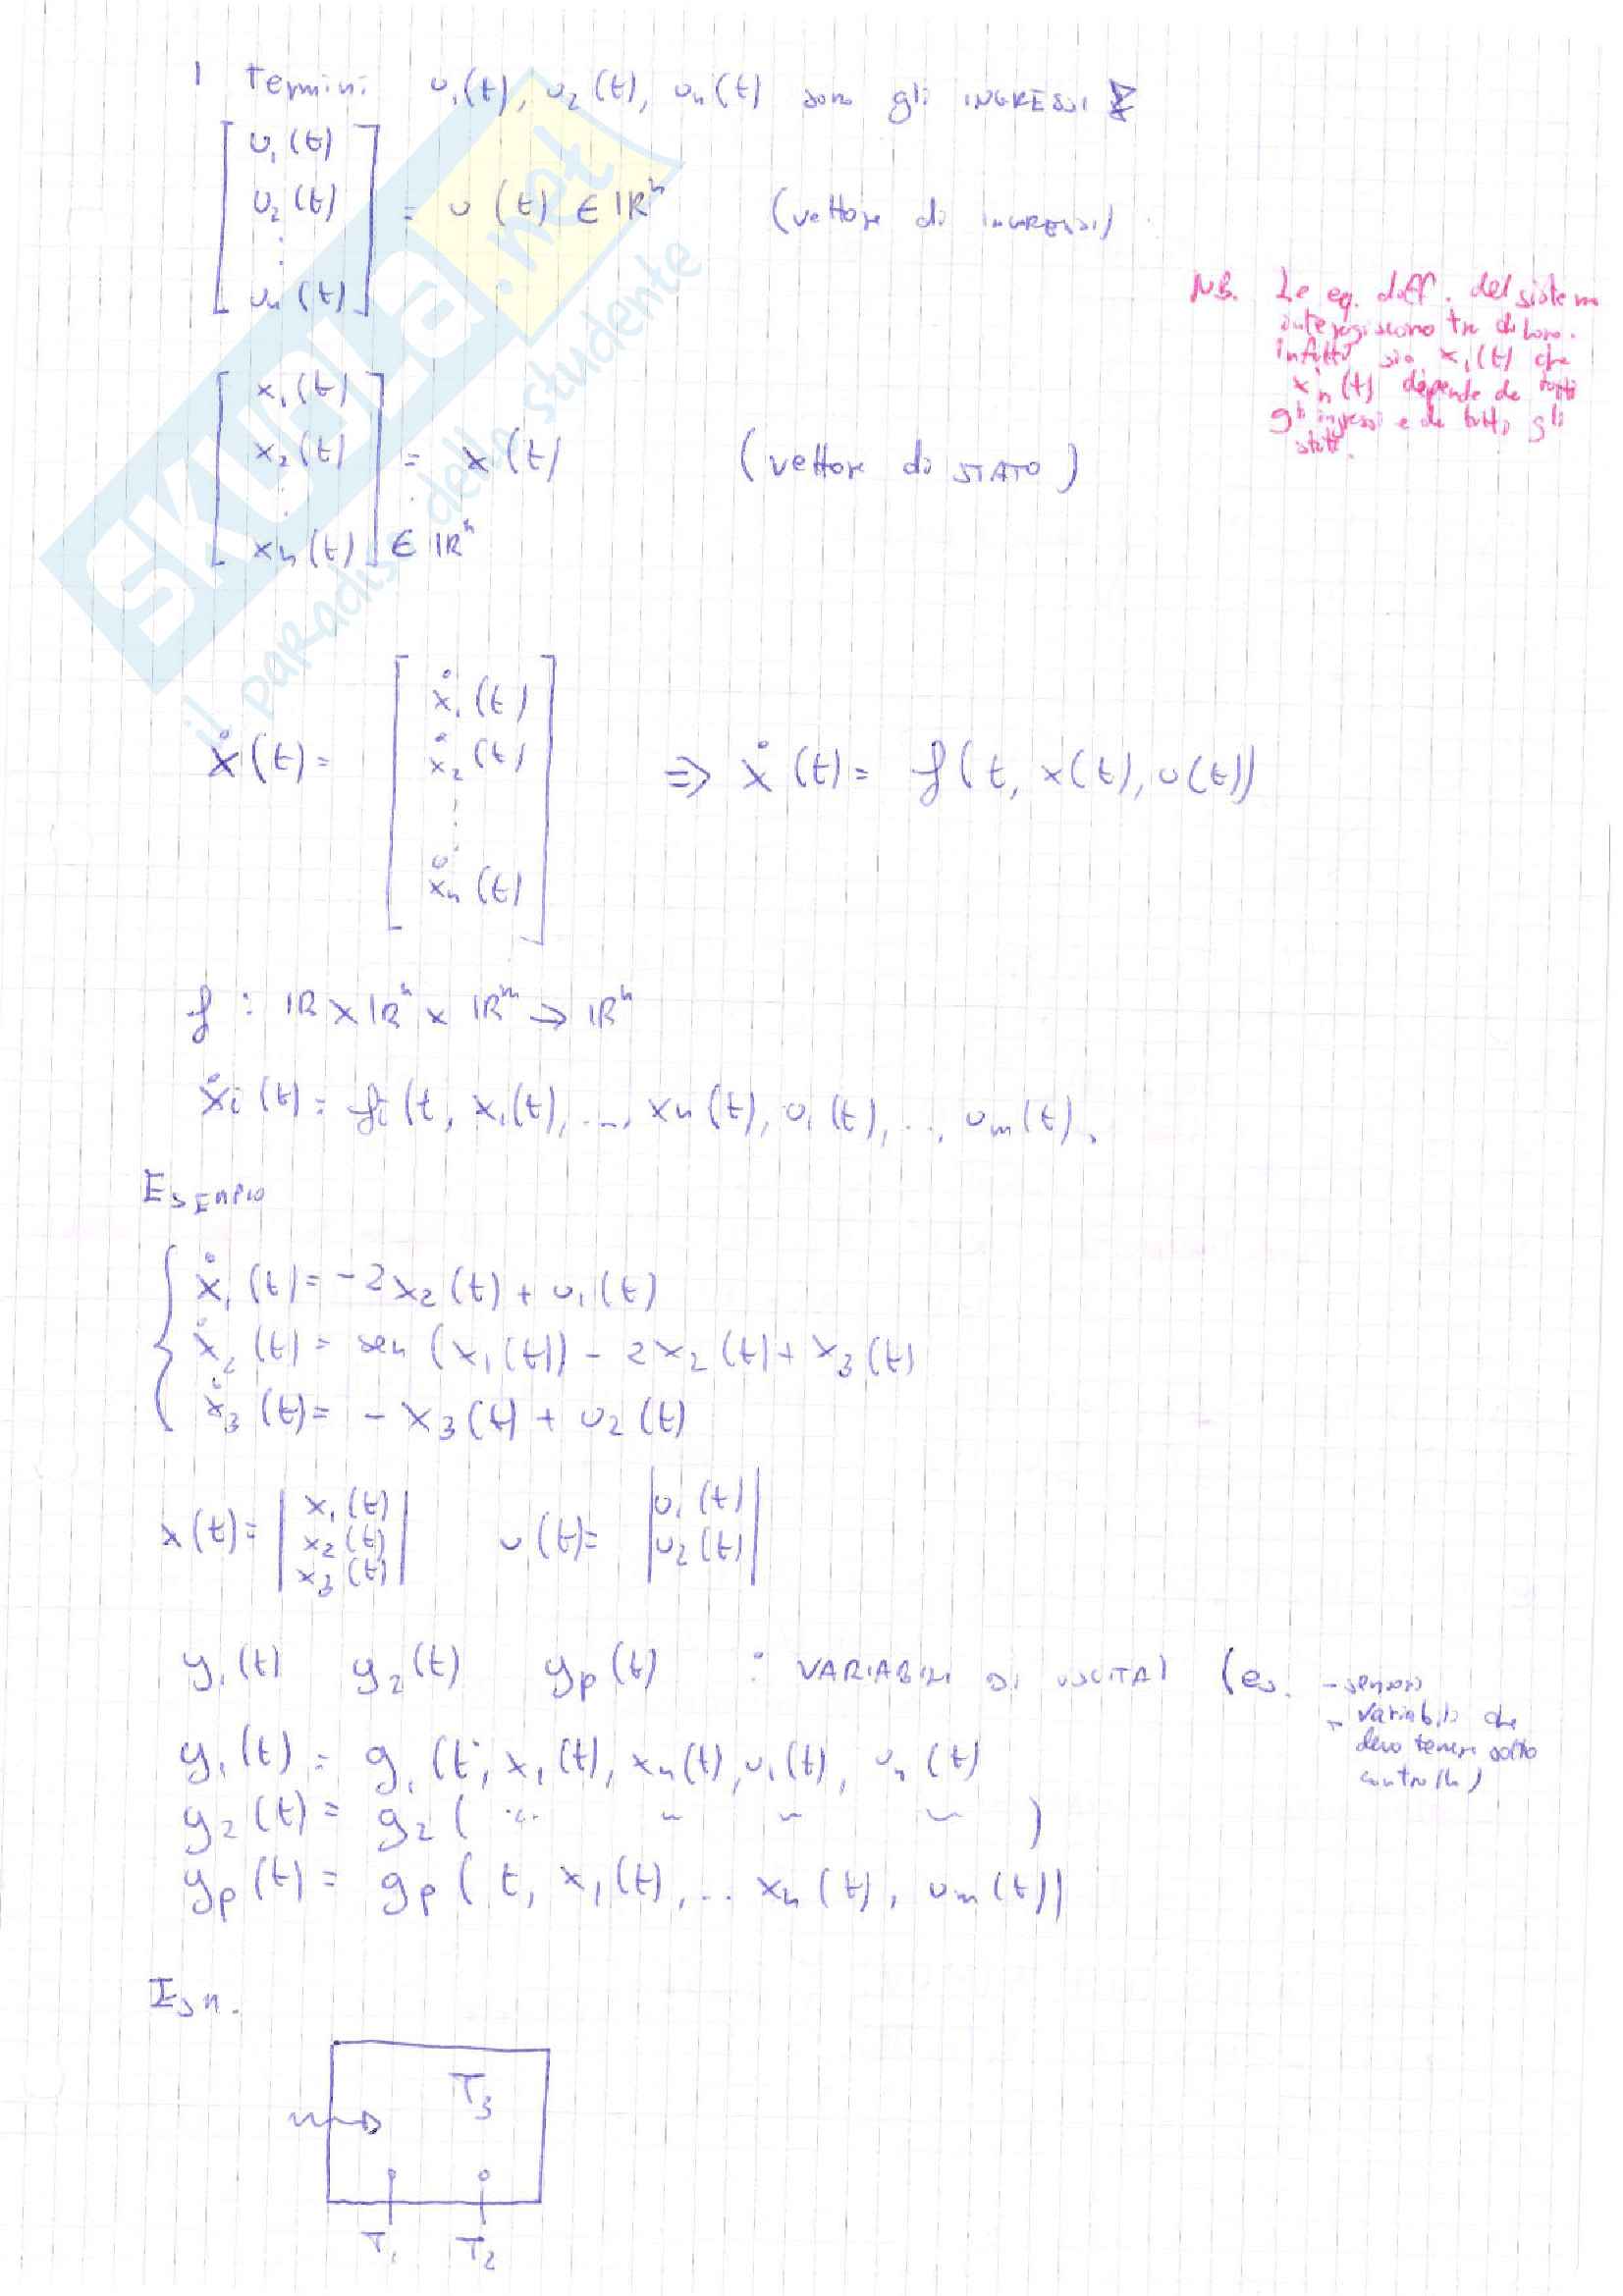 I Termini u₁(t), u₂(t), uₙ(t) sono gli INGRESSI
[ u₁(t)
u₂(t)
⋮
uₙ(t) ] = u(t) ∈ ℝⁿ (vettore di INGRESSI)
N.B. Le eq. diff. del sistema
interagiscono tra di loro.
infatti sia ẋ₁(t) che
ẋₙ(t) dipende da tutti
gli ingressi e da tutti gli
stati.
[ x₁(t)
x₂(t)
⋮
xₙ(t) ] = x(t) ∈ ℝⁿ (vettore di STATO)
ẋ(t) = [ ẋ₁(t)
ẋ₂(t)
⋮
ẋₙ(t) ] ⇒ ẋ(t) = f(t, x(t), u(t))
f : ℝ × ℝⁿ × ℝᵐ → ℝⁿ
ẋᵢ(t) = fᵢ(t, x₁(t), ..., xₙ(t), u₁(t), .., uₘ(t).
ESEMPIO
{ ẋ₁(t) = -2x₂(t) + u₁(t)
ẋ₂(t) = sen(x₁(t)) - 2x₂(t) + x₃(t)
ẋ₃(t) = -x₃(t) + u₂(t)
x(t) = | x₁(t)
x₂(t)
x₃(t) | u(t) = | u₁(t)
u₂(t) |
y₁(t) y₂(t) yₚ(t) : VARIABILI DI USCITA (es. - sensori
- variabili che
devo tenere sotto
controllo)
y₁(t) = g₁(t, x₁(t), xₙ(t), u₁(t), uₙ(t)
y₂(t) = g₂( ... " " " )
yₚ(t) = gₚ(t, x₁(t), ... xₙ(t), uₘ(t))
T₃
T₁ T₂
SKUOLA.net
il paradiso dello studente